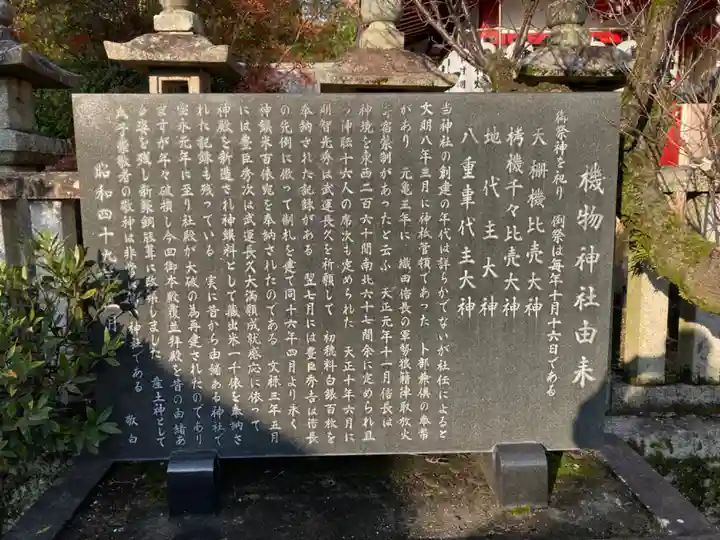 機物神社由来
御祭神を祀り 例祭は毎年十月十六日である
天棚機比売大神
栲機千々比売大神
地代主大神
八重事代主大神
当神社の創建の年代は詳らかでないが社伝によると
文明八年三月に神祇管領であった 卜部兼倶の奉常
があり 元亀三年に 織田信長の軍勢狼籍陣取放火
寄宿禁制があったと云ふ 天正元年十一月信長は
神境を東西二百六十間南北六十七間余に定められ且
つ 神臨十六人の席次も定められた 天正十年六月に
明智光秀は武運長久を祈願して 初穂料白銀百枚を
奉納された記録がある 翌七月には豊臣秀吉は信長
の先例に倣って制札を建て同十六年四月より永く
神鎮米百俵宛を奉納されたのである 文禄三年五月
には豊臣秀次は武運長久大満願成就感応に依って
神殿を新造され神鎮料として蔵出米一千俵を奉納さ
れた記録も残っている 実に昔から由緒ある神社で
宝永元年に至り社殿が大破の為再建されたのであり
ますが年々破損し今回御本殿覆並拝殿を昔の由緒あ
る姿を残し新築銅版葺に改築しました 産土神として
氏子崇敬者の敬神は非常 神社である 敬白
昭和四十九年 月